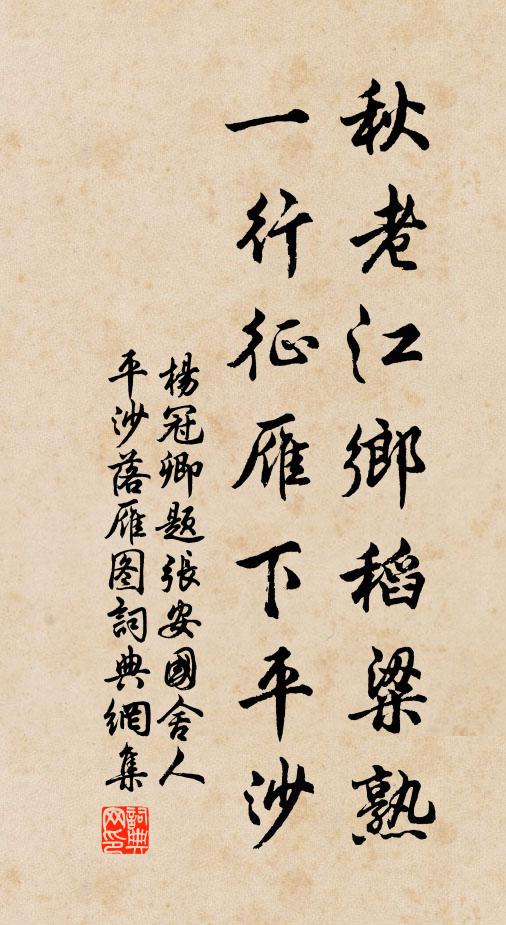 秋老江鄉稻粱熟
一行征雁下平沙
楊冠卿題張安國舍人
平沙落雁图詞典網集
詞典
网印